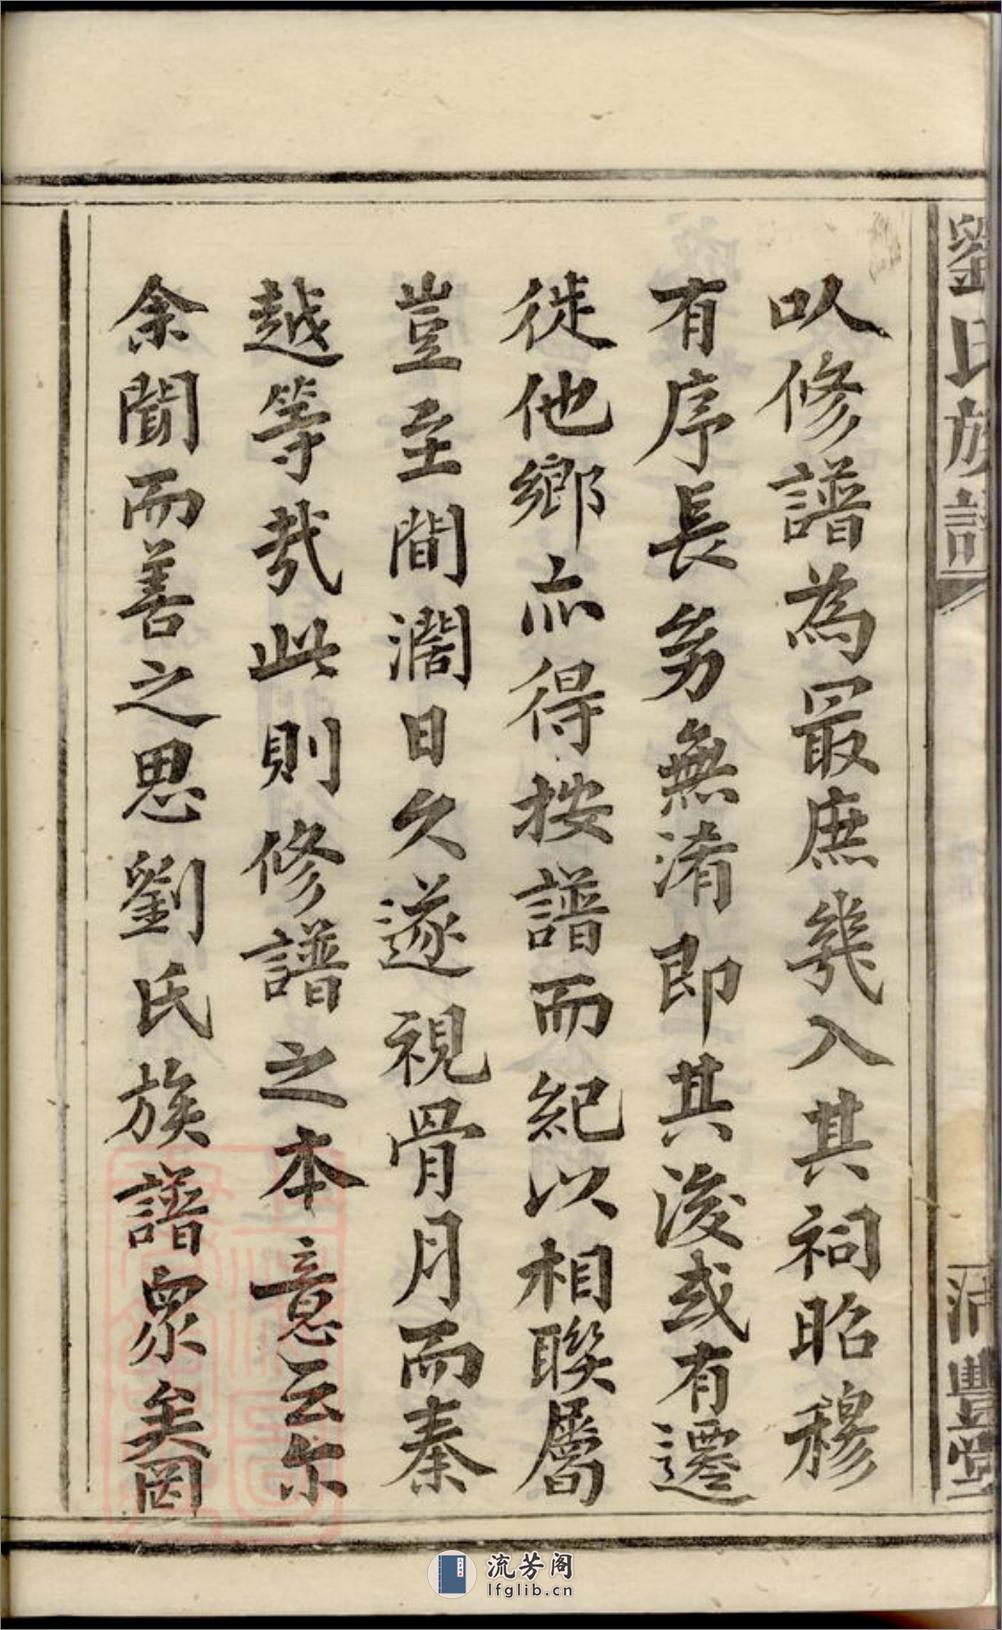 劉氏族譜
以修譜為最庶幾入其祠昭穆
有序長㓜無淆即其後或有遷
徙他鄉亦得按譜而紀以相聯屬
豈至間濶日久遂視骨月而秦
越等哉此則修譜之本意云尔
余聞而善之思劉氏族譜衆矣罔
豐堂
流芳阁
lfglib.cn